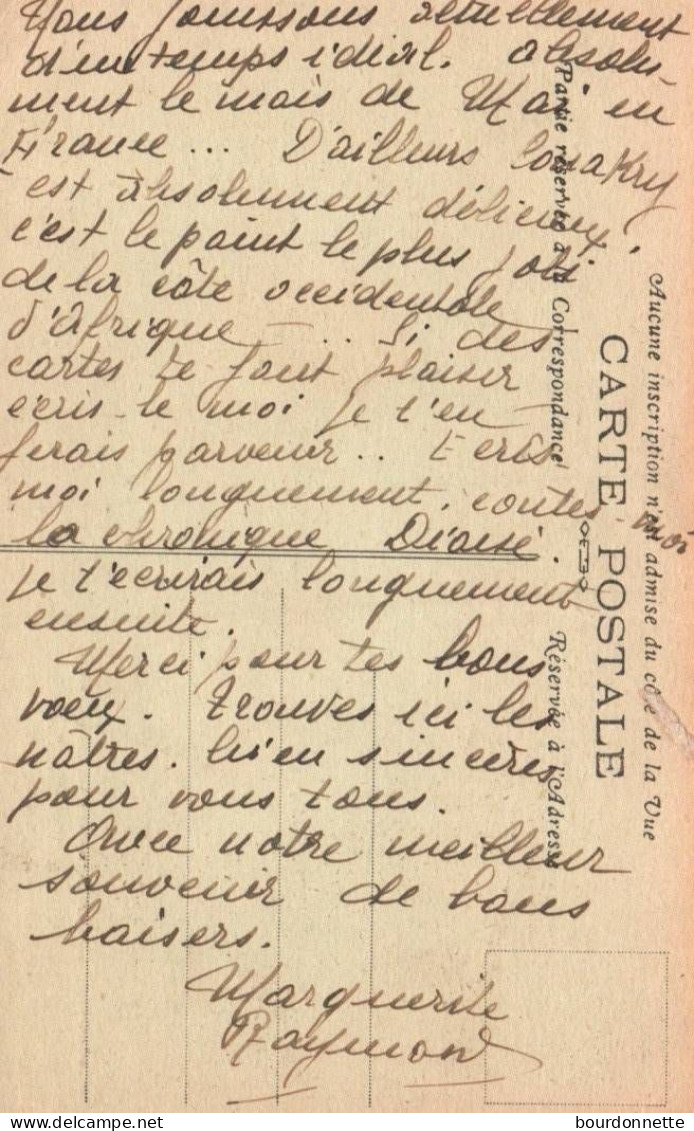 Nous jouissons actuellement
d'un temps idéal. absolu-
ment le mois de Mai en
France... D'ailleurs Conakry
est absolument délicieux,
c'est le point le plus joli
de la côte occidentale
d'Afrique — ... Si des
cartes te font plaisir
écris-le moi je t'en
ferais parvenir.. Ecris
moi longuement, contes-moi
la chronique
je t'ecrirais longuement
ensuite.
Merci pour tes bons
voeux. Trouves ici les
nôtres. bien sincères
pour vous tous.
Avec notre meilleur
souvenir de bons
baisers.
Marguerite
Raymond
Partie réservée à la Correspondance
Réservée à l'Adresse
CARTE POSTALE
Aucune inscription n'est admise du côté de la Vue
delcampe.net
bourdonnette